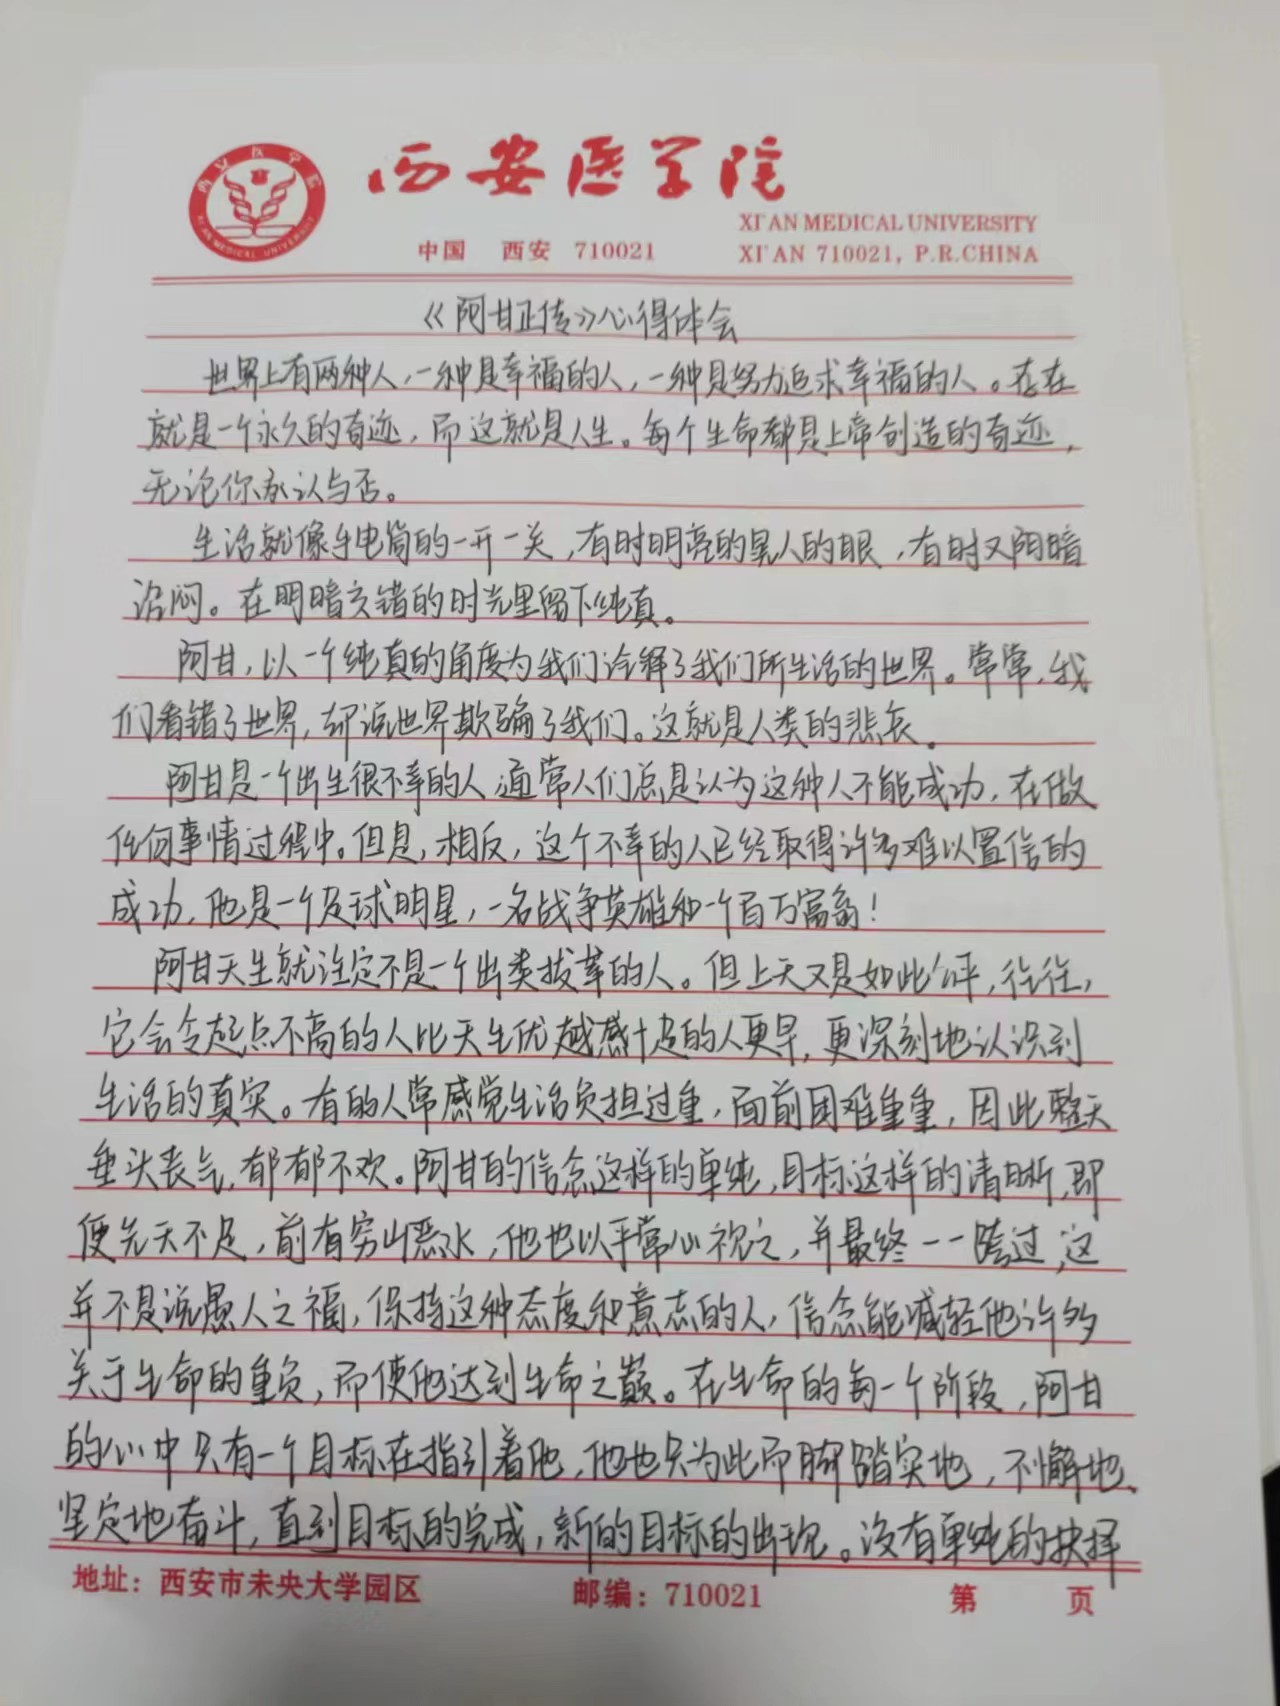 西安医学院
XI'AN MEDICAL UNIVERSITY
西安医学院
XI'AN MEDICAL UNIVERSITY
中国 西安 710021
XI'AN 710021, P.R.CHINA
《阿甘正传》心得体会
世界上有两种人,一种是幸福的人,一种是努力追求幸福的人。存在
就是一个永久的奇迹,而这就是人生。每个生命都是上帝创造的奇迹,
无论你承认与否。
生活就像手电筒的一开一关,有时明亮的晃人的眼,有时又阴暗
沉闷。在明暗交错的时光里留下纯真。
阿甘,以一个纯真的角度为我们诠释了我们所生活的世界。常常,我
们看错了世界,却说世界欺骗了我们。这就是人类的悲哀。
阿甘是一个出生很不幸的人,通常人们总是认为这种人不能成功,在做
任何事情过程中。但是,相反,这个不幸的人已经取得许多难以置信的
成功,他是一个足球明星,一名战争英雄和一个百万富翁!
阿甘天生就注定不是一个出类拔萃的人。但上天又是如此公平,往往,
它会令起点不高的人比天生优越感十足的人更早,更深刻地认识到
生活的真实。有的人常感觉生活负担过重,面前困难重重,因此整天
垂头丧气,郁郁不欢。阿甘的信念这样的单纯,目标这样的清晰,即
便先天不足,前有穷山恶水,他也以平常心视之,并最终一一跨过,这
并不是说愚人之福,保持这种态度和意志的人,信念能减轻他许多
关于生命的重负,而使他达到生命之巅。在生命的每一个阶段,阿甘
的心中只有一个目标在指引着他,他也只为此而脚踏实地,不懈地、
坚定地奋斗,直到目标的完成,新的目标的出现。没有单纯的抉择
地址:西安市未央大学园区 邮编:710021 第 页